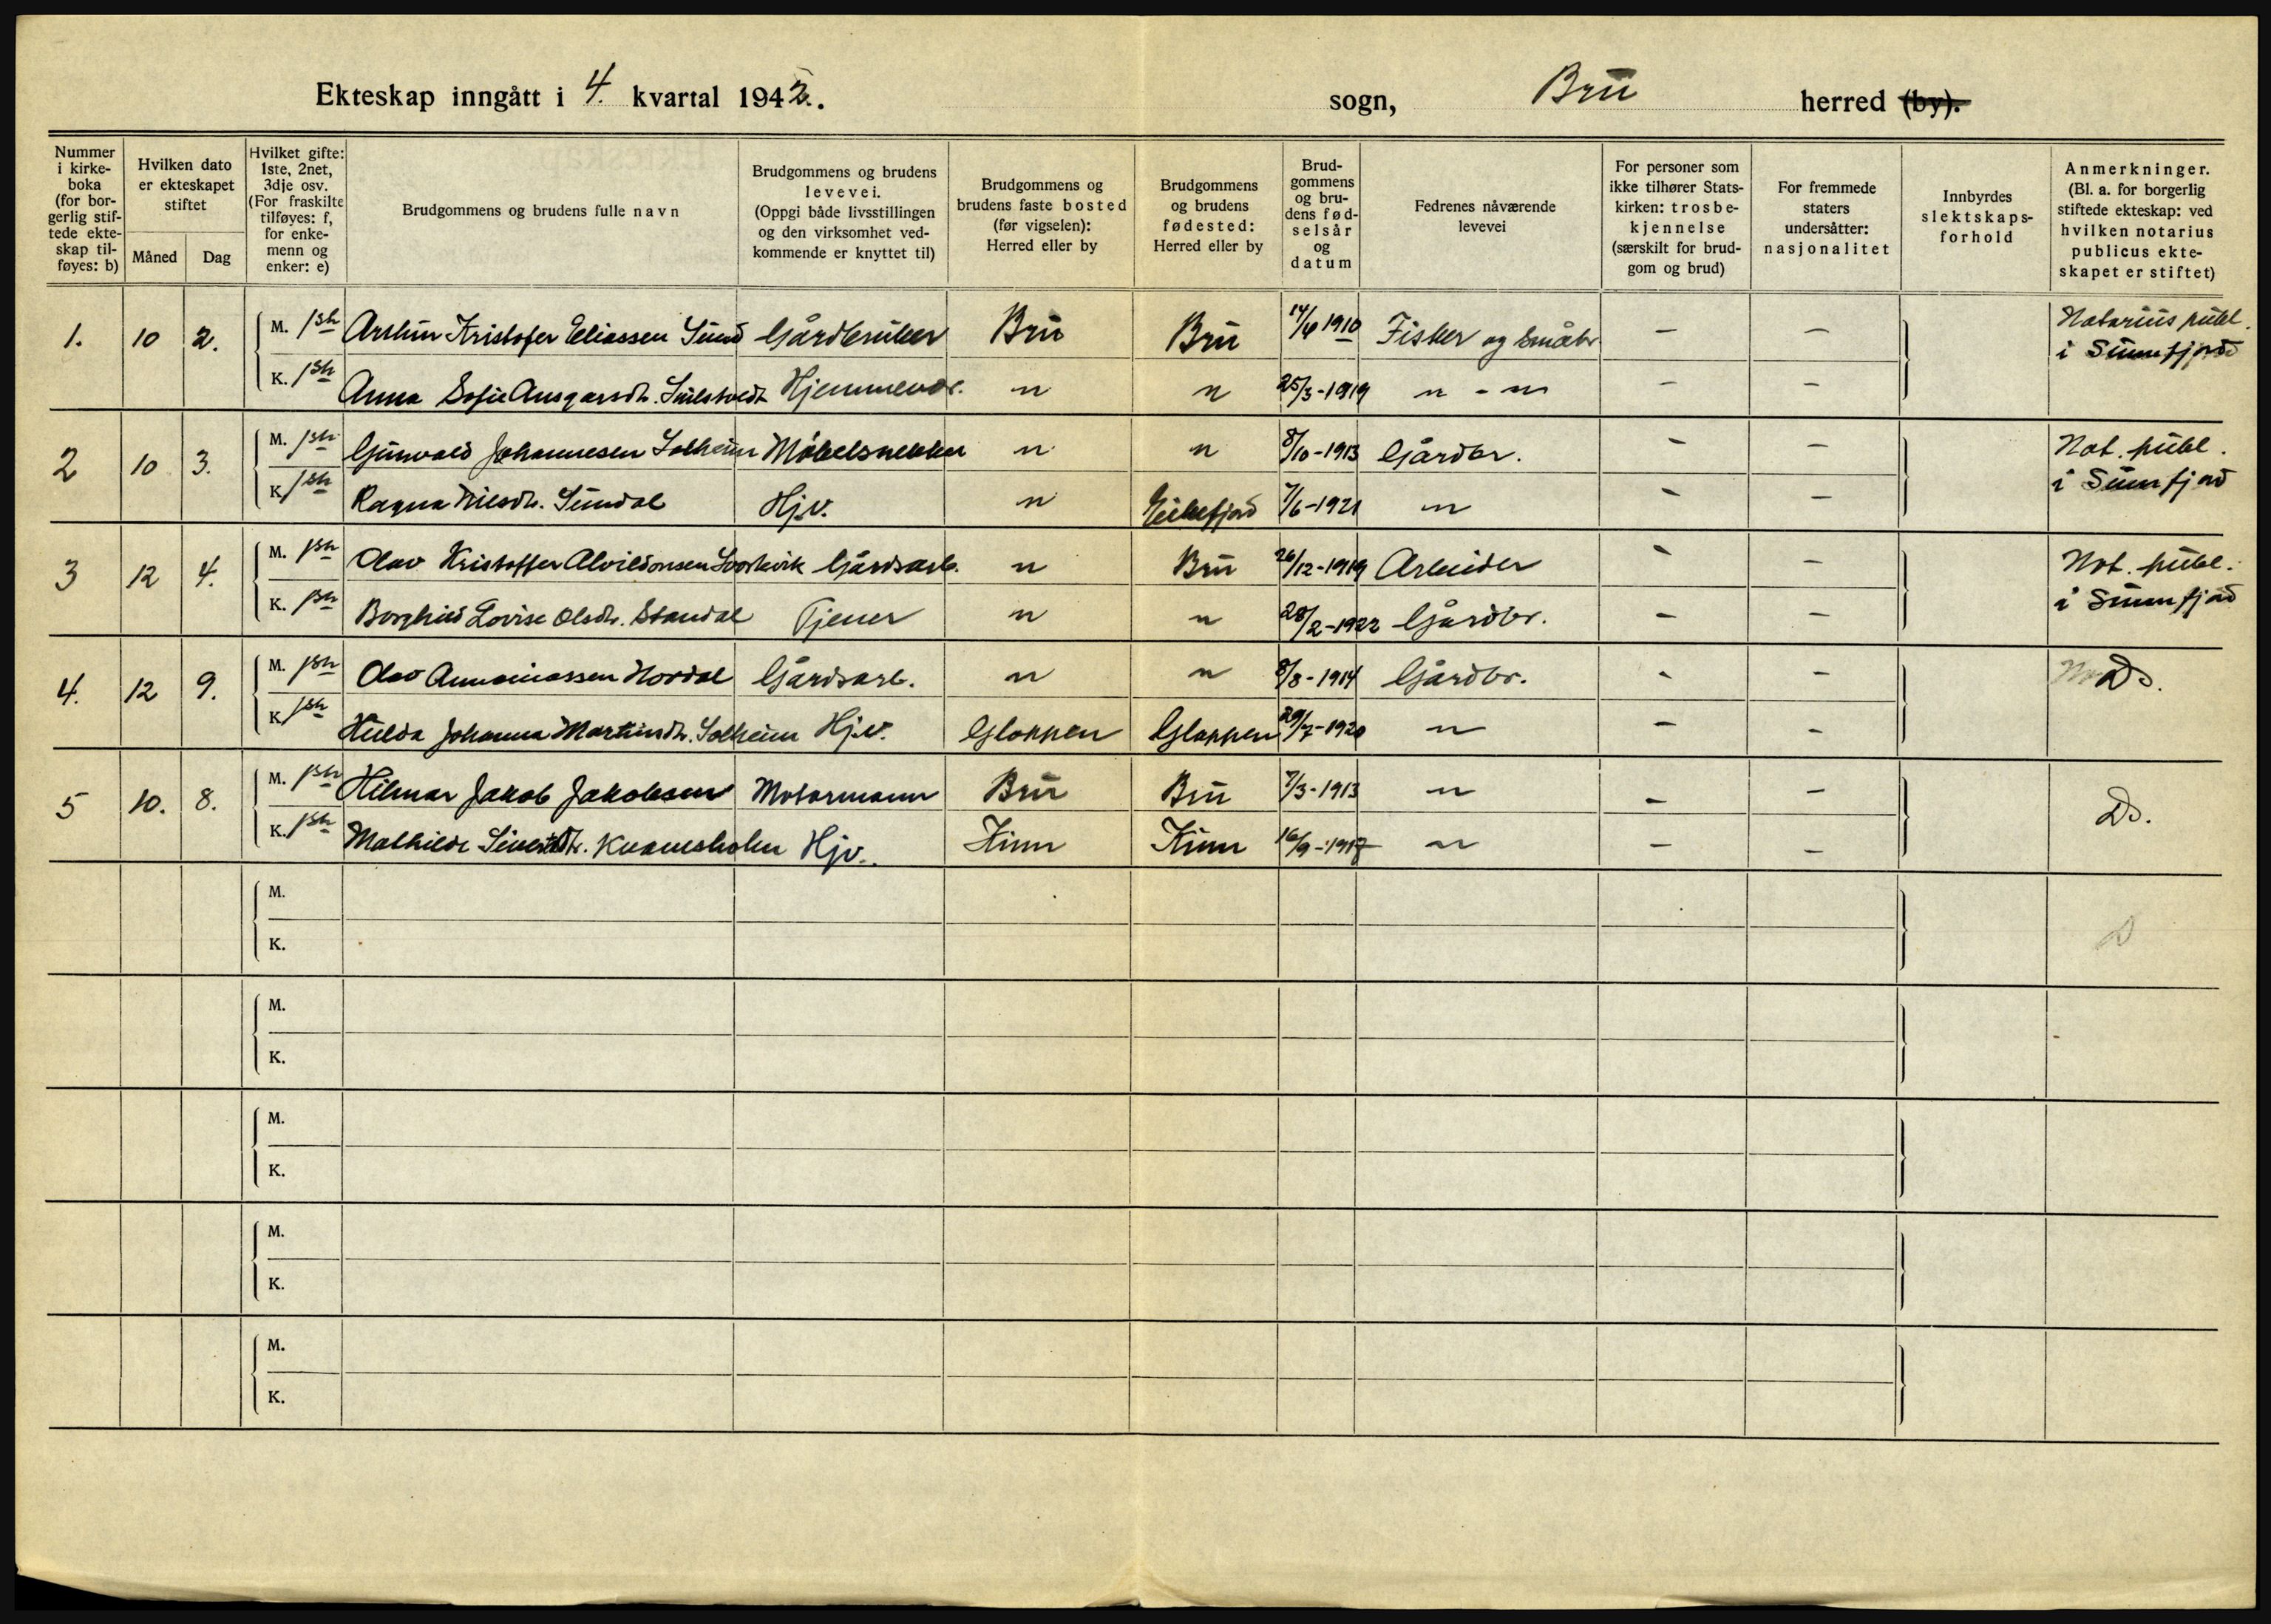 Ekteskap inngått i 4. kvartal 1942. sogn, Bru herred (by).
Nummer i kirkeboka (for borgerlig stiftede ekteskap tilføyes: b)
Hvilken dato er ekteskapet stiftet
Måned Dag
Hvilket gifte: 1ste, 2net, 3dje osv. (For fraskilte tilføyes: f, for enkemenn og enker: e)
Brudgommens og brudens fulle navn
Brudgommens og brudens levevei. (Oppgi både livsstillingen og den virksomhet vedkommende er knyttet til)
Brudgommens og brudens faste bosted (før vigselen): Herred eller by
Brudgommens og brudens fødested: Herred eller by
Brudgommens og brudens fødselsår og datum
Fedrenes nåværende levevei
For personer som ikke tilhører Statskirken: trosbekjennelse (særskilt for brudgom og brud)
For fremmede staters undersåtter: nasjonalitet
Innbyrdes slektskapsforhold
Anmerkninger. (Bl. a. for borgerlig stiftede ekteskap: ved hvilken notarius publicus ekteskapet er stiftet)
1. 10 2. M. 1ste Arthur Kristofer Eliassen Sund Gårdbruker Bru Bru 14/4 1910 Fisker og småbr. — — Notarius publ. i Sunnfjord
K. 1ste Anna Sofie Ansgarsdtr. Hjemmevær. " " 25/3-1919 " - " — —
2 10 3. M. 1ste Gunvald Johannesen Solheim Møbelsnekker " " 8/10-1913 Gårdbr. — — Not. publ. i Sunnfjord
K. 1ste Ragna Nilsdtr. Sundal Hj.v. " Eikefjord 7/6-1921 " — —
3 12 4. M. 1ste Olav Kristoffer Alvildonsen Gårdsarb. " Bru 26/12-1919 Arbeider — — Not. publ. i Sunnfjord
K. 1ste Borghild Lovise Olsdtr. Standal Tjener " " 28/2-1922 Gårdbr. — —
4. 12 9. M. 1ste Olav Annaniassen Hovdal Gårdsarb. " " 8/8-1914 Gårdbr. — — Do.
K. 1ste Hulda Johanna Martinsdtr. Solheim Hj.v. Gloppen Gloppen 29/7-1920 " — —
5 10. 8. M. 1ste Hilmar Jakob Jakobsen Motormann Bru Bru 7/3-1913 " — — Do.
K. 1ste Mathilde Sivertsdtr. Kvamsholm Hjv. Kinn Kinn 16/9-1917 " — —
M.
K.
M.
K.
M.
K.
M.
K.
M.
K.